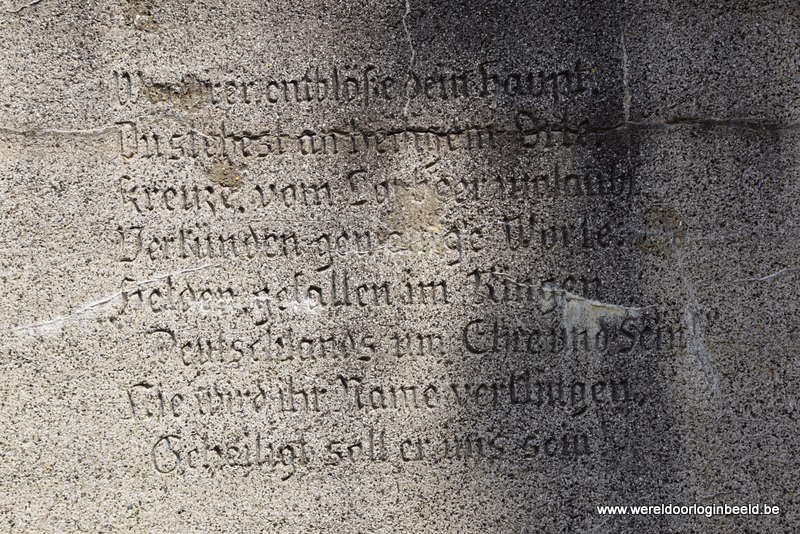 Wandrer, entblöße dein haupt,
Du stehest an heiligem Orte
kreuze, vom Lorbeer umlaubt
Verkünden gewaltige Worte.
„Helden, gefallen im Ringen
Deutschlands um Ehre und Sein"
Nie wird ihr Name verklingen,
Geheiligt soll er uns sein
www.wereldoorloginbeeld.be